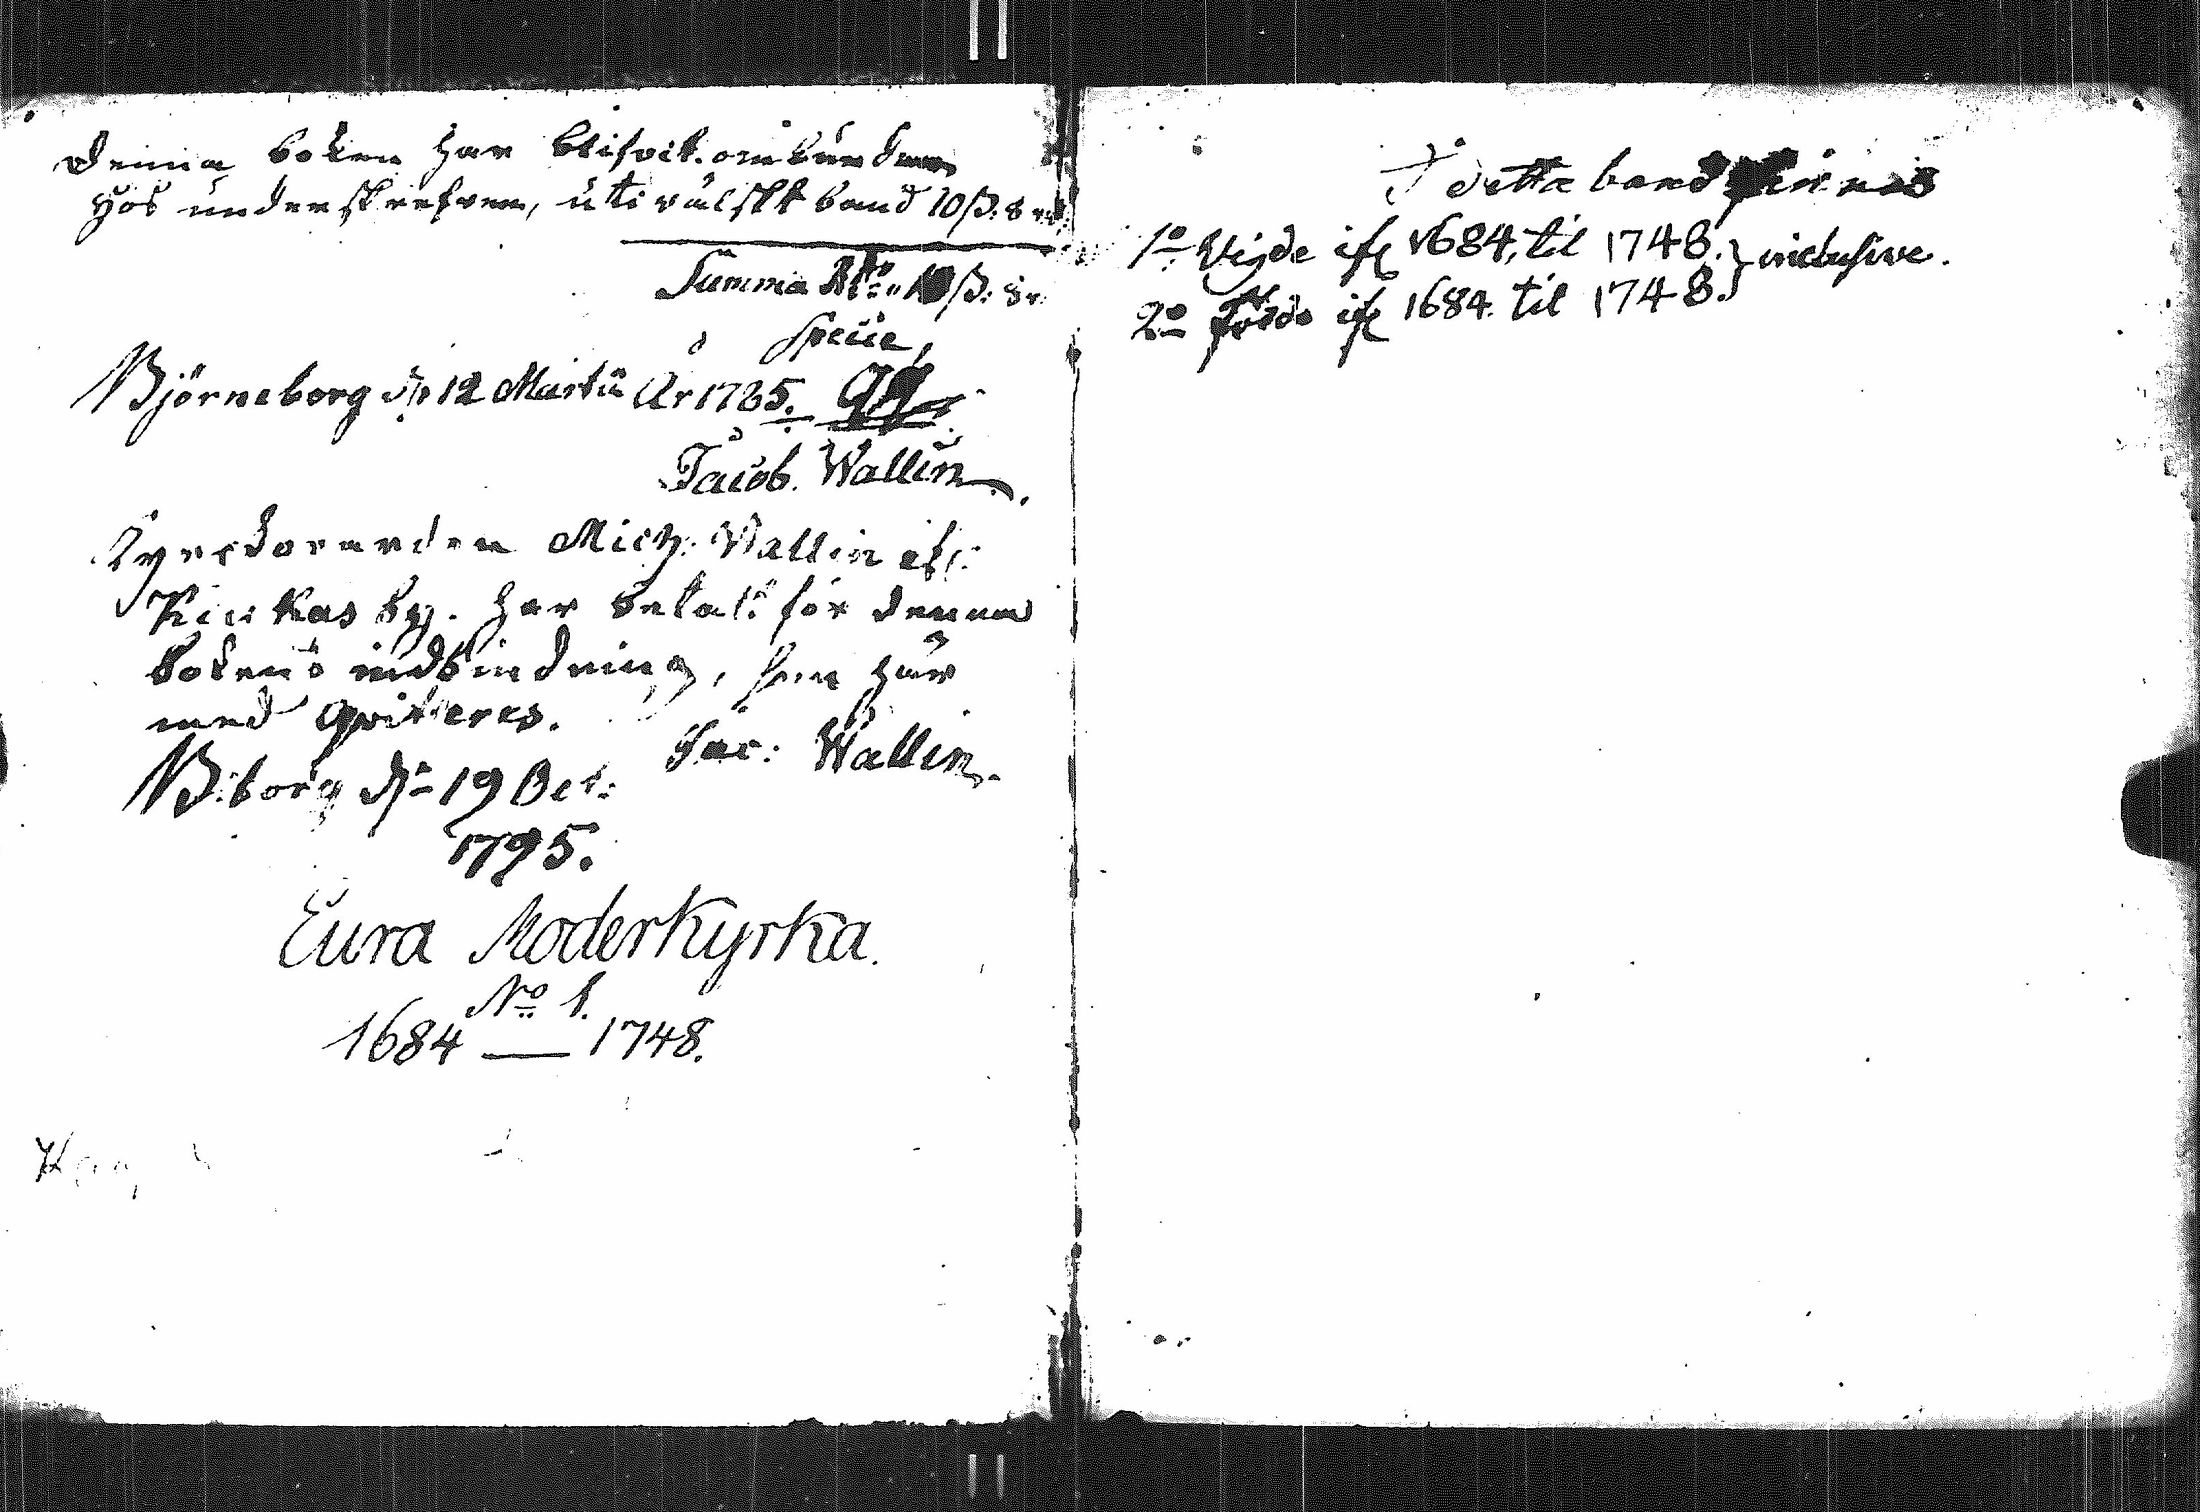 Denna boken har blifvit ombunden
hos underskrefven, uti välskt band 10 ß: 8 rst:
Summa Rdr: " 10 ß: 8 r
Specie,
Björneborg dn 12 Martii År 1785.
Jacob. Wallin.
Kyrckovärden Mich: Wallin ifr:
Kiukas by. har betalt för denna
bokens indbindning, som här
med qvitteres.
Jac: Wallin.
B:borg dn 19 Oct:
1795.
Eura Moderkyrka.
No 1.
1684 — 1748.
I detta band finnes
1o Vigde ifr 1684, til 1748. } inclusive.
2o födde ifr 1684. til 1748.